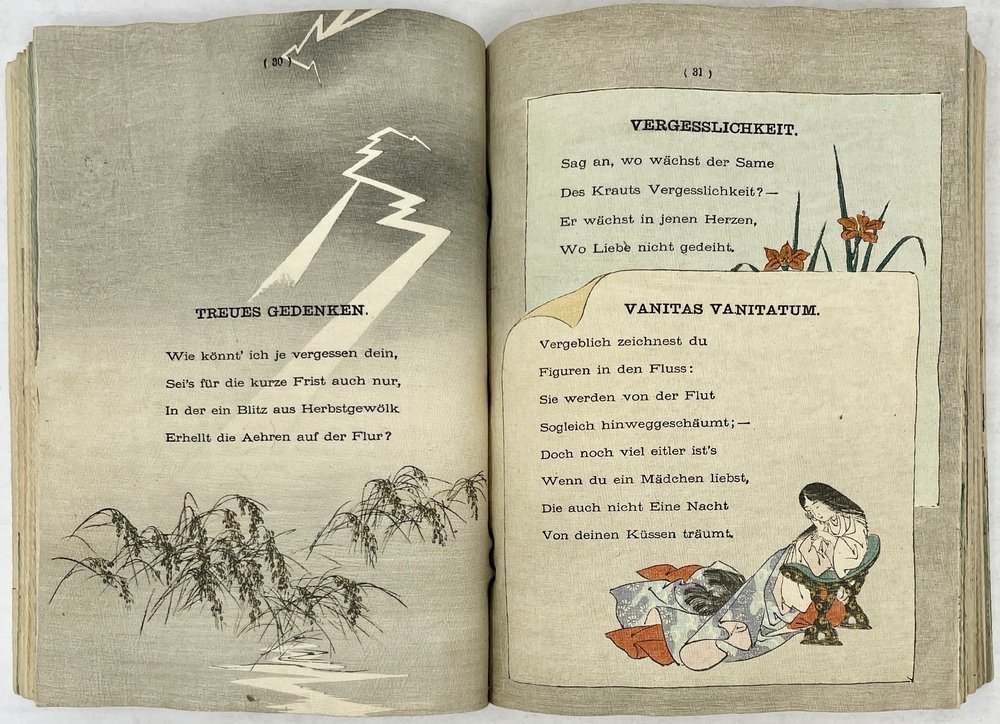 ( 30 )
TREUES GEDENKEN.
Wie könnt' ich je vergessen dein,
Sei's für die kurze Frist auch nur,
In der ein Blitz aus Herbstgewölk
Erhellt die Aehren auf der Flur?
( 31 )
VERGESSLICHKEIT.
Sag an, wo wächst der Same
Des Krauts Vergesslichkeit?—
Er wächst in jenen Herzen,
Wo Liebe nicht gedeiht.
VANITAS VANITATUM.
Vergeblich zeichnest du
Figuren in den Fluss:
Sie werden von der Flut
Sogleich hinweggeschäumt;—
Doch noch viel eitler ist's
Wenn du ein Mädchen liebst,
Die auch nicht Eine Nacht
Von deinen Küssen träumt.